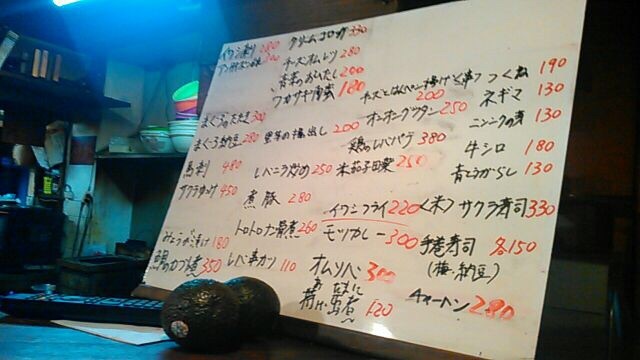 イワシ刺し 280 クリームコロッケ 330
チーズオムレツ 280
青菜のおひたし 200
ワカサギ南蛮 180
つくね 190
200
ネギマ 130
まぐろぶつ 300
オニオングラタン 250
ニンニクの芽 130
まぐろ納豆 280
里芋の揚出し 200
鶏のレバパテ 380
牛シロ 180
馬刺 480
レバニラ炒め 250
米茄子田楽 250
青とうがらし 130
サクラユッケ 450
煮豚 280
イワシフライ 220
サクラ寿司 330
みょうが漬け 180
トロトロナス煮 260
モツカレー 300
手巻寿司 各150
(梅・納豆)
350
レバ串カツ 110
オムソバ 300
チャートン 280
120